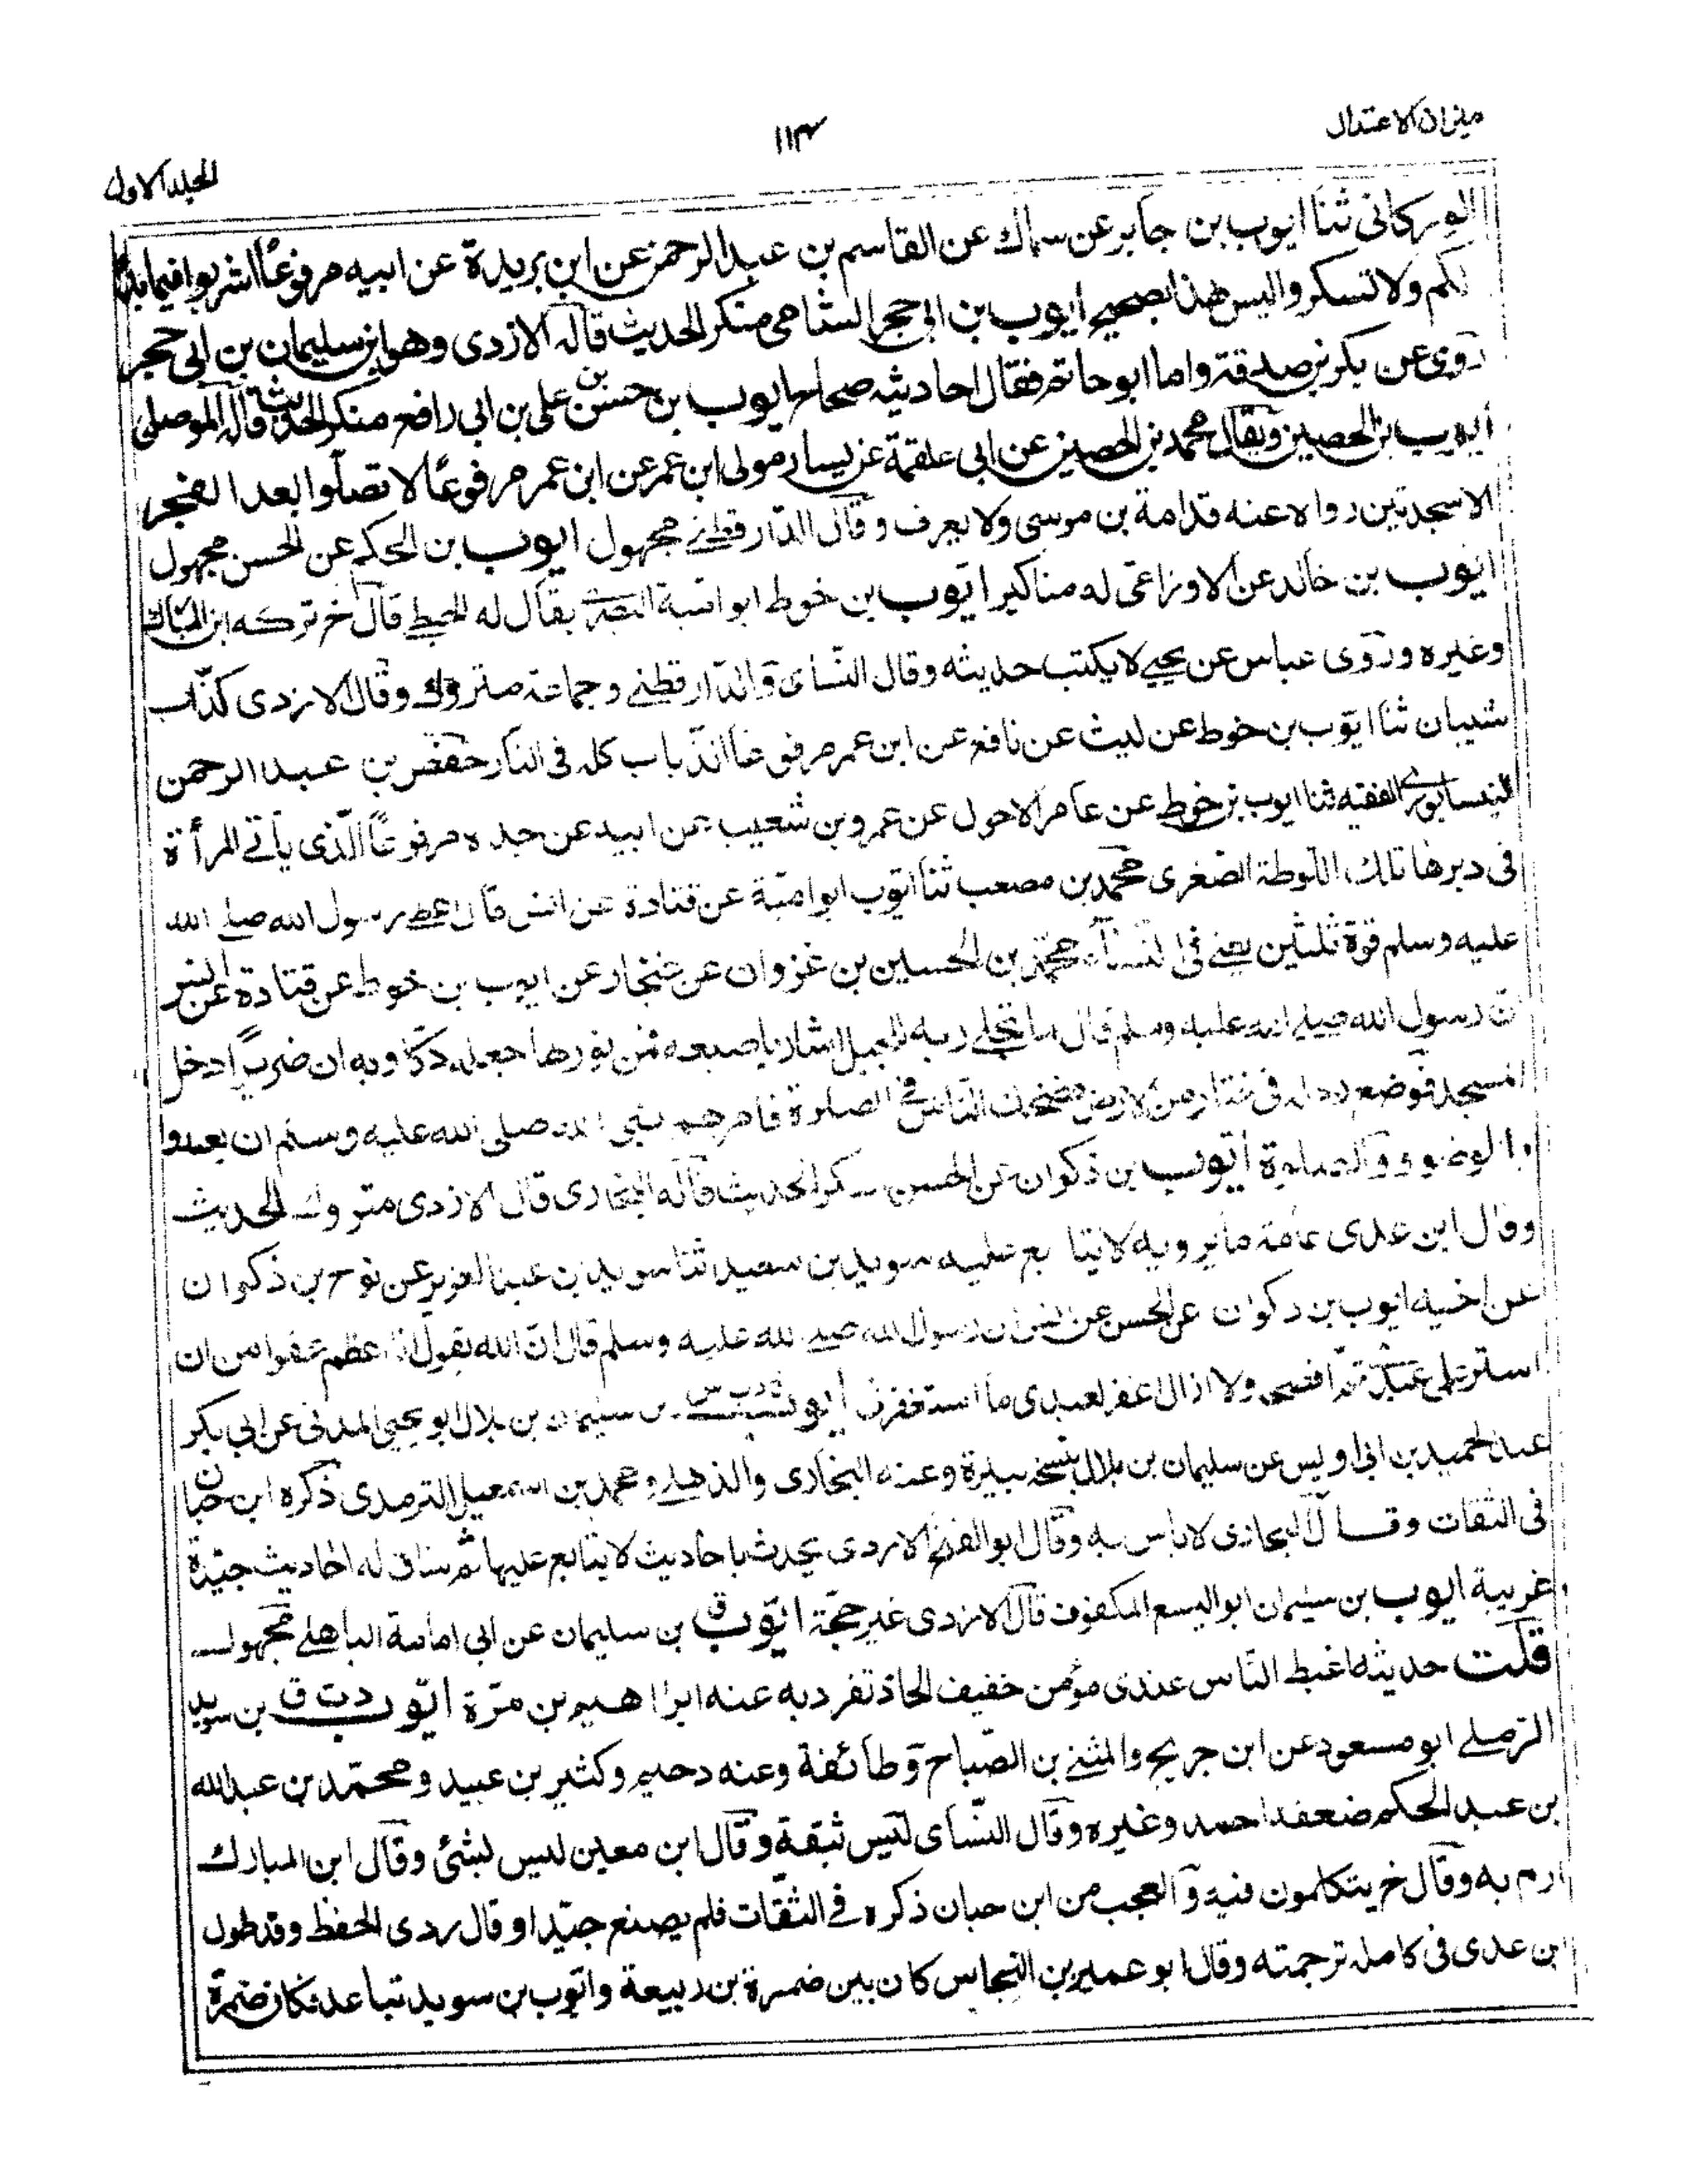 ميزان الاعتدال
١١٣
المجلد الاول
الوركانى ثنا ايوب بن جابر عن سماك عن القاسم بن عبد الرحمن عن ابن بريدة عن ابيه مرفوعًا اشربوا فيما بدا
لكم ولا تسكروا ليس هذا بصحيح ايوب بن ابى حجر الشامى منكر الحديث قاله الازدى وهو ابن سليمان بن ابى حجر
روى عن بكر بن صدقة واما ابو حاتم فقال احاديثه صحاح ايوب بن حسن بن على بن ابى رافع منكر الحديث قاله الموصلى
ايوب بن الحصين ويقال محمد بن الحصين عن ابى علقمة عن يسار مولى ابن عمر عن ابن عمر مرفوعًا لا تصلوا بعد الفجر
الا سجدتين رواه عنه قدامة بن موسى ولا يعرف وقال الدارقطنے مجهول ايوب بن الحكم عن الحسن مجهول
ايوب بن خالد عن الاوزاعى له مناكير ايوب بن خوط ابو امية البصرى يقال له الحبطے قال خ تركه ابن المبارك
وغيره وروى عباس عن يحيے لا يكتب حديثه وقال النسائى والدارقطنے وجماعة متروك وقال الازدى كذّاب
شيبان ثنا ايوب بن خوط عن ليث عن نافع عن ابن عمر مرفوعًا الذباب كله فى النار حفص بن عبد الرحمن
النيسابورے الفقيه ثنا ايوب بن خوط عن عامر الاحول عن عمرو بن شعيب عن ابيه عن جده مرفوعًا الذى ياتے المرأة
فى دبرها تلك اللوطة الصغرى محمد بن مصعب ثنا ايوب ابو امية عن قتادة عن انس قال اعطے رسول الله صلے الله
عليه وسلم قوة ثلثين يعنے فى النساء محمد بن الحسين بن غزوان عن غنجار عن ايوب بن خوط عن قتادة عن انس
ان رسول الله صلے الله عليه وسلم قال لما تجلے ربه للجبل اشار باصبعه فمن نورها جعله دكا وبه ان ضريرًا دخل
المسجد فوضع رجله فى من الارض فضحك الناس فے الصلوة فامرهم نبى الله صلى الله عليه وسلم ان يعيدوا
الوضوء والصلوة ايوب بن ذكوان عن الحسن منكر الحديث قاله البخارى قال الازدى متروك الحديث
وقال ابن عدى عامة ما يرويه لا يتابع عليه سويد بن سعيد ثنا سويد بن عبد العزيز عن نوح بن ذكوان
عن اخيه ايوب بن ذكوان عن الحسن عن انس ان رسول الله صلے الله عليه وسلم قال ان الله يقول انا اعظم عفوا من ان
استر على عبدى ثم افضحه ولا ازال اغفر لعبدى ما استغفرنى ايوب بن سليمان بن بلال ابو يحيى المدنى عن ابى بكر
عبد الحميد بن ابى اويس عن سليمان بن بلال بنسخة وعنه البخارى والذهلے ومحمد بن اسمعيل الترمذى ذكره ابن حبان
فى الثقات وقال البخارى لا باس به وقال ابو الفتح الازدى يحدث باحاديث لا يتابع عليها ثم ساق له احاديث جيدة
غريبة ايوب بن سليمان ابو اليسع المكفوف قال الازدى غير حجة ايوب ق بن سليمان عن ابى امامة الباهلے مجهول
قلت حديثه اغبط الناس عندى مؤمن خفيف الحاذ تفرد به عنه ابراهيم بن مرة ايوب د ت ق بن سويد
الرملے ابو مسعود عن ابن جريج والمثنے بن الصباح وطائفة وعنه دحيم وكثير بن عبيد ومحمد بن عبد الله
بن عبد الحكم ضعفه احمد وغيره وقال النسائى ليس بثقة وقال ابن معين ليس بشئ وقال ابن المبارك
ارم به وقال خ يتكلمون فيه والعجب من ابن حبان ذكره فے الثقات فلم يصنع جيدا وقال ردى الحفظ وقد طول
ابن عدى فى كامله ترجمته وقال ابو عمير بن النحاس كان بين ضمرة بن ربيعة وايوب بن سويد تباعد فكان ضمرة